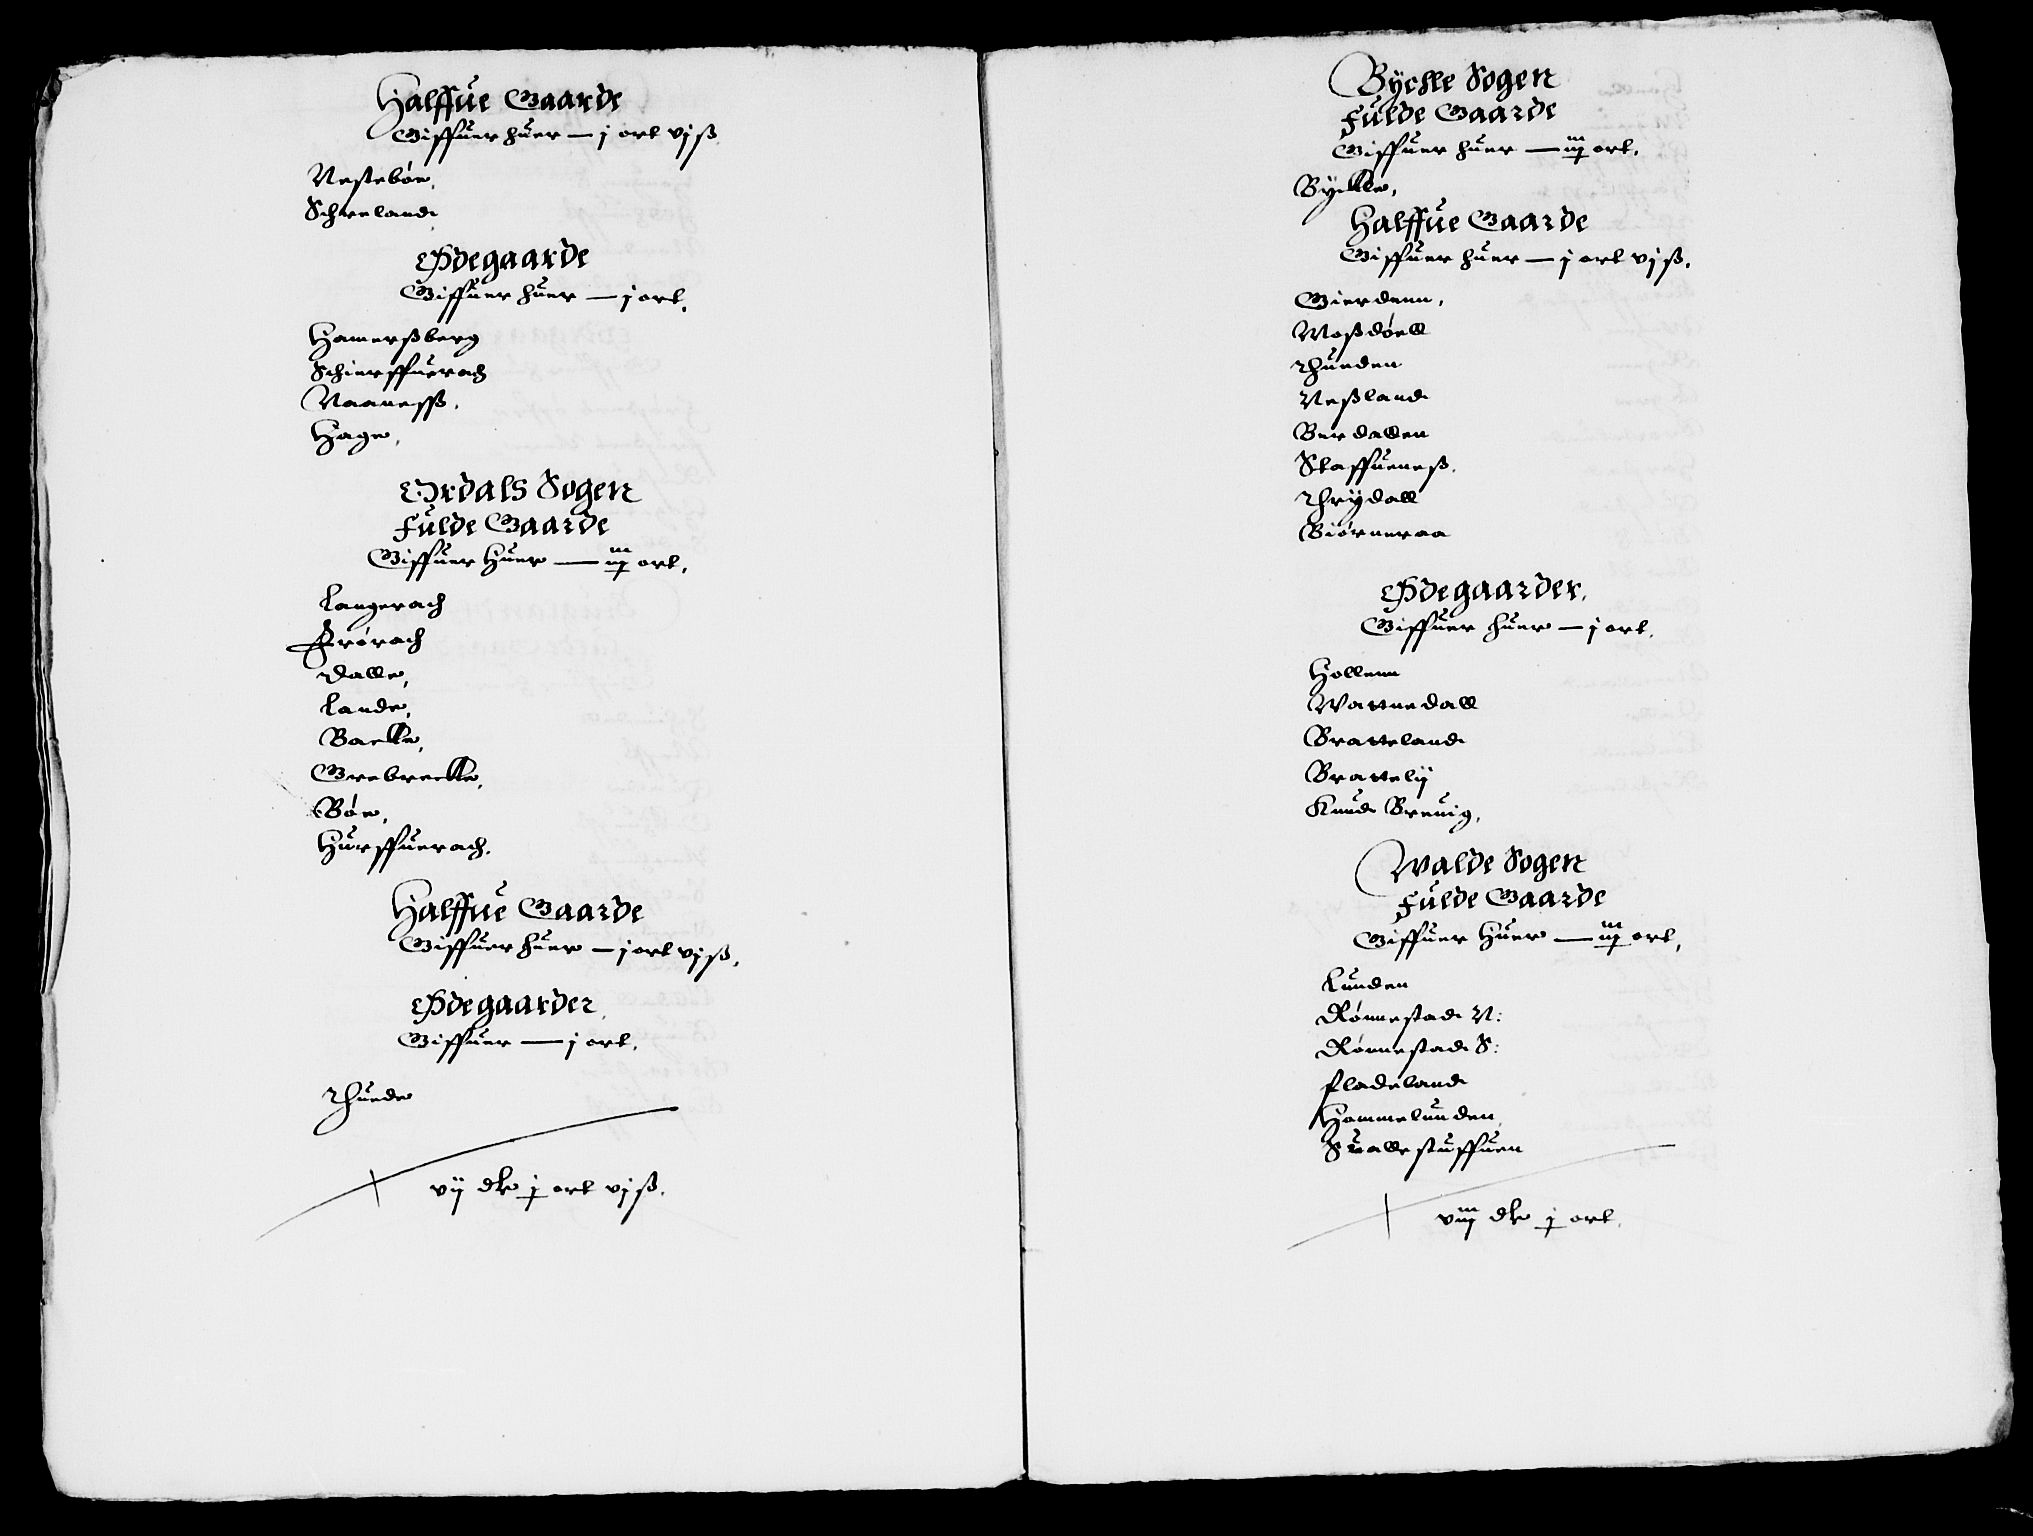 Halffue Gaarde
Giffuer huer — j ort vjß
Nestebøe,
Scheeland
Ødegaarde
Giffuer huer — j ort.
Hamerßberg
Schierffuerach
Naaneſß.
Hage,
Ordals Sogen
Fulde Gaarde
Giffuer Huer — iij ort,
Langerach
Frørach
Dalle,
Lande,
Backe,
Grebrecke,
Bøe,
Hurffuerach.
Halffue Gaarde
Giffuer huer — j ort vjß.
Ødegaarder
Giffuer — j ort.
Thuede
vij dr j ort vjß.
Byckle Sogen
Fulde Gaarde
Giffuer huer — iij ort.
Byckle,
Halffue Gaarde
Giffuer huer — j ort vjß.
Gierdenn,
Moßdøell
Thueden
Neßland
Berdallen
Staffueneß.
Thrydall
Biørneraa
Ødegaarder.
Giffuer huer — j ort.
Hollenn
Wattnedall
Bratteland
Brattely
Knud Breuig,
Walde Sogen
Fulde Gaarde
Giffuer Huer — iij ort,
Lunden
Rønnestad N:
Rønnestad S:
Fladeland
Hommelunden
Suallestuffuen
viij dr j ort.